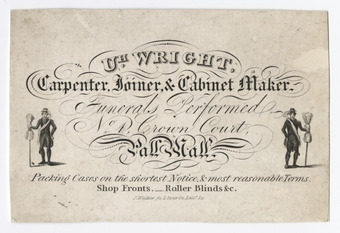 WRIGHT.
Carpenter, Joiner, & Cabinet Maker.
Funerals Performed
Crown Court,
Pall Mall.
Packing Cases on the shortest Notice, & most reasonable Terms.
Shop Fronts. — Roller Blinds &c.